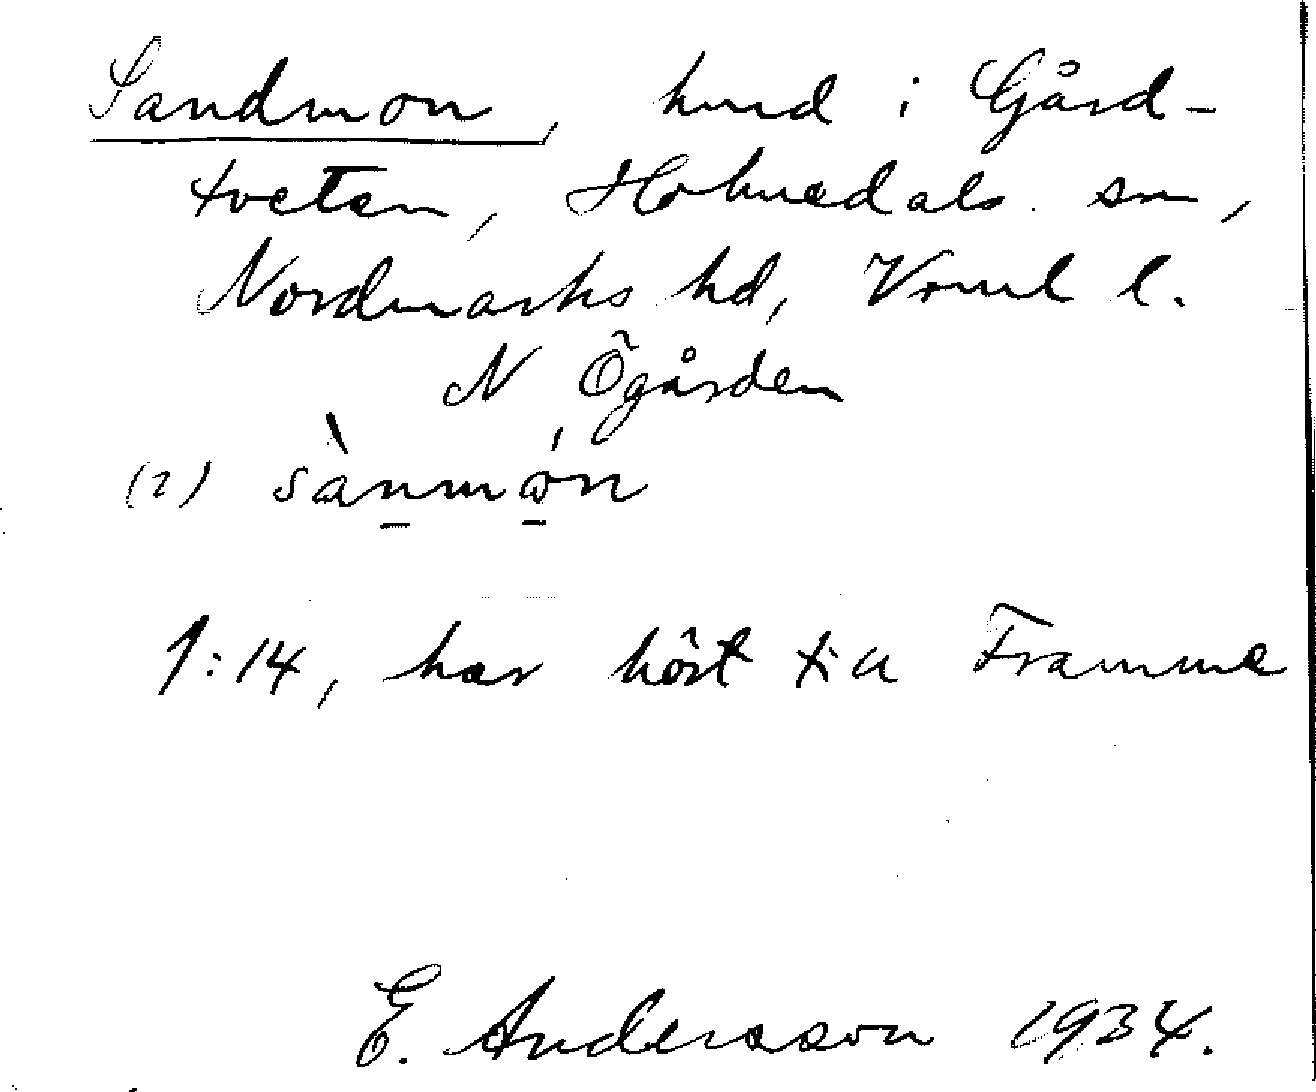 Sandmon, hmd i Gård-
tveten, Holmedals sn,
Nordmarks hd, Vrml l.
N Ögården
(2) sànmo̱n
1:14, har hört till Framme
E. Andersson 1934.